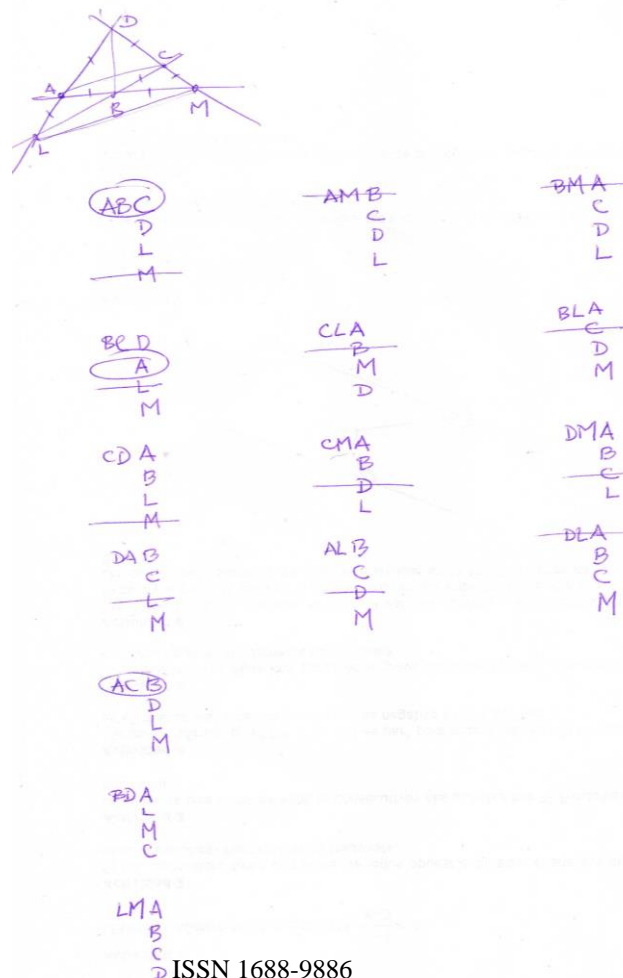 D
C
A
B
M
L
ABC
D
L
M
BCD
A
L
M
CDA
B
L
M
DAB
C
L
M
ACB
D
L
M
BDA
L
M
C
LMA
B
C
D
AMB
C
D
L
CLA
B
M
D
CMA
B
D
L
ALB
C
D
M
BMA
C
D
L
BLA
C
D
M
DMA
B
C
L
DLA
B
C
M
ISSN 1688-9886